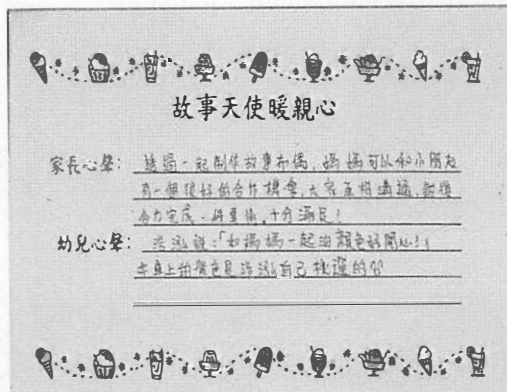 故事天使暖親心
家長心聲： 透過一起制作故事布偶，媽媽可以和小朋友
有一個很好的合作機會，大家互相溝通，然後
合力完成一件事情，十分滿足！
幼兒心聲： 浩泓說：「和媽媽一起油顏色好開心！」
布章上的顏色是浩泓自己挑選的